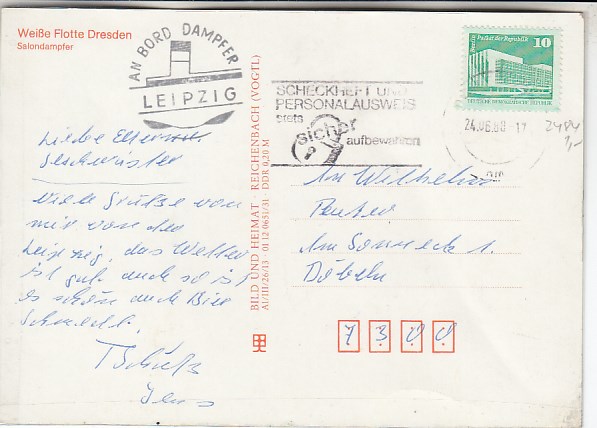 Weiße Flotte Dresden
Salondampfer
AN BORD DAMPFER
LEIPZIG
Liebe Eltern u.
Geschwister
Viele Grüße von
mir von der
Leipzig, das Wetter
ist gut auch so ist
es schön auch Bier
schmeckt.
Tschüß
Jens
BILD UND HEIMAT · REICHENBACH (VOGTL)
A1/III/26/13 01 12 0651/31 DDR 0,20 M
SCHECKHEFT UND
PERSONALAUSWEIS
stets
sicher
aufbewahren
Berlin, Palast der Republik
10
DEUTSCHE DEMOKRATISCHE REPUBLIK
24.06.80-17
2484
1,-
An Wilhelm
Am Sonneck 1.
Döbeln
7300